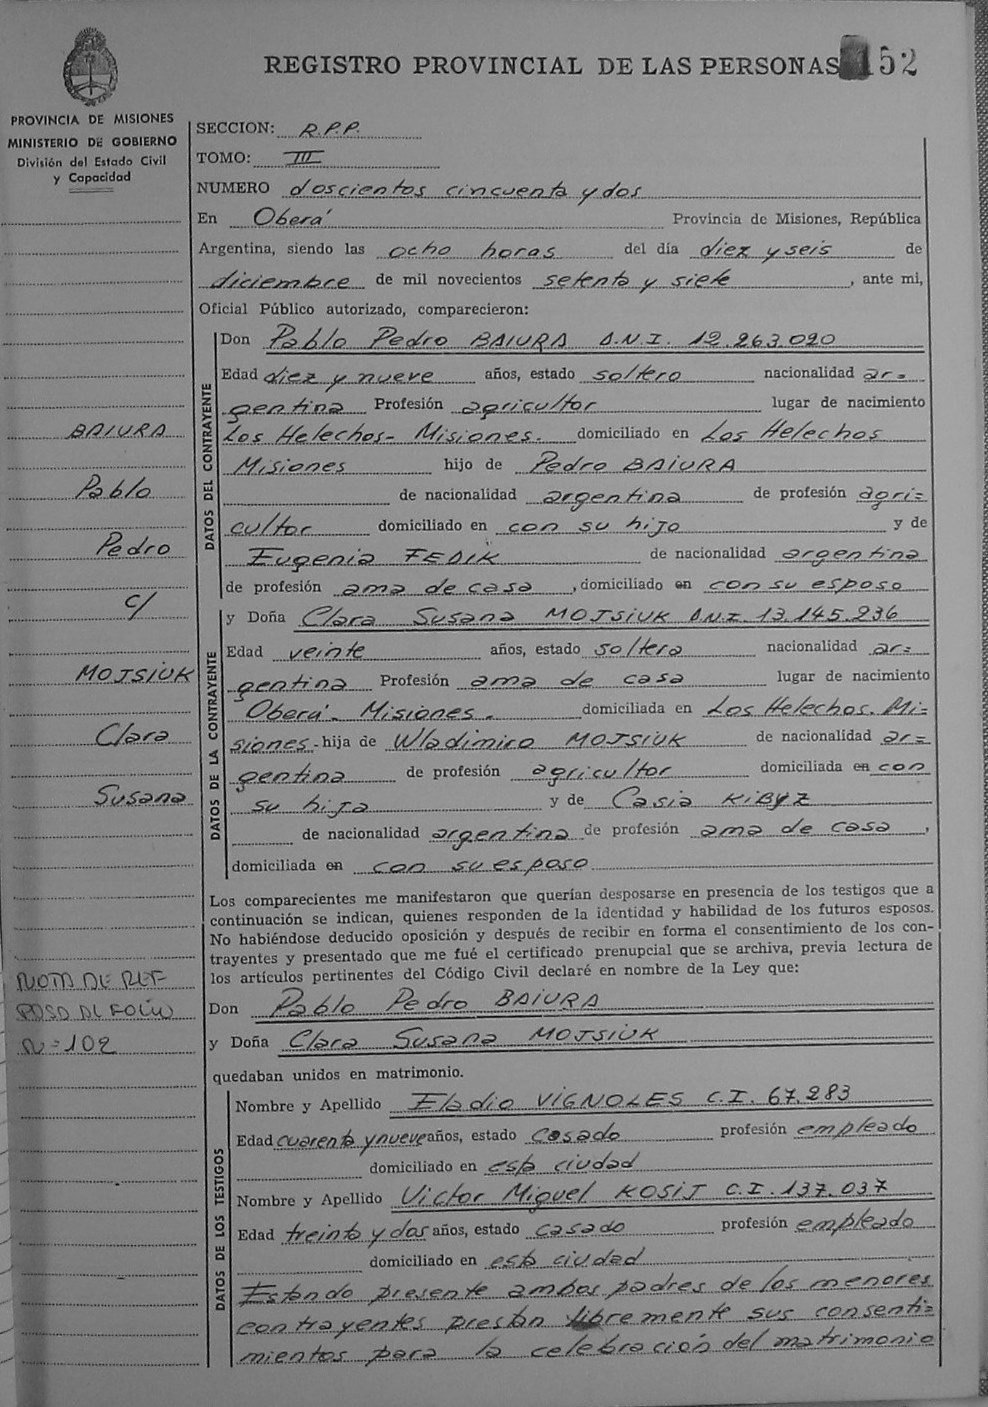 REGISTRO PROVINCIAL DE LAS PERSONAS 152
PROVINCIA DE MISIONES
MINISTERIO DE GOBIERNO
División del Estado Civil
y Capacidad
SECCION: R.P.P.
TOMO: III
NUMERO doscientos cincuenta y dos
En Oberá Provincia de Misiones, República
Argentina, siendo las ocho horas del día diez y seis de
diciembre de mil novecientos setenta y siete, ante mi,
Oficial Público autorizado, comparecieron:
DATOS DEL CONTRAYENTE
Don Pablo Pedro BAIURA D.N.I. 12.263.020
Edad diez y nueve años, estado soltero nacionalidad ar=
gentina Profesión agricultor lugar de nacimiento
Los Helechos- Misiones. domiciliado en Los Helechos
Misiones hijo de Pedro BAIURA
de nacionalidad argentina de profesión agri=
cultor domiciliado en con su hijo y de
Eugenia FEDIK de nacionalidad argentina
de profesión ama de casa, domiciliado en con su esposo
DATOS DE LA CONTRAYENTE
y Doña Clara Susana MOJSIUK D.N.I. 13.145.236
Edad veinte años, estado soltera nacionalidad ar=
gentina Profesión ama de casa lugar de nacimiento
Oberá- Misiones. domiciliada en Los Helechos. Mi=
siones- hija de Wladimiro MOJSIUK de nacionalidad ar=
gentina de profesión agricultor domiciliada en con
su hija y de Casia KIBYZ
de nacionalidad argentina de profesión ama de casa,
domiciliada en con su esposo
Los comparecientes me manifestaron que querían desposarse en presencia de los testigos que a
continuación se indican, quienes responden de la identidad y habilidad de los futuros esposos.
No habiéndose deducido oposición y después de recibir en forma el consentimiento de los con-
trayentes y presentado que me fué el certificado prenupcial que se archiva, previa lectura de
los artículos pertinentes del Código Civil declaré en nombre de la Ley que:
Don Pablo Pedro BAIURA
y Doña Clara Susana MOJSIUK
quedaban unidos en matrimonio.
DATOS DE LOS TESTIGOS
Nombre y Apellido Eladio VIGNOLES C.I. 67.283
Edad cuarenta y nueve años, estado Casado profesión empleado
domiciliado en esta ciudad
Nombre y Apellido Victor Miguel KOSIJ C.I. 137.037
Edad treinta y dos años, estado casado profesión empleado
domiciliado en esta ciudad
Estando presente ambos padres de los menores
contrayentes prestan libremente sus consenti=
mientos para la celebración del matrimonio
BAIURA
Pablo
Pedro
c/
MOJSIUK
Clara
Susana
NOTA DE REF
PASO AL FOLIO
N=102